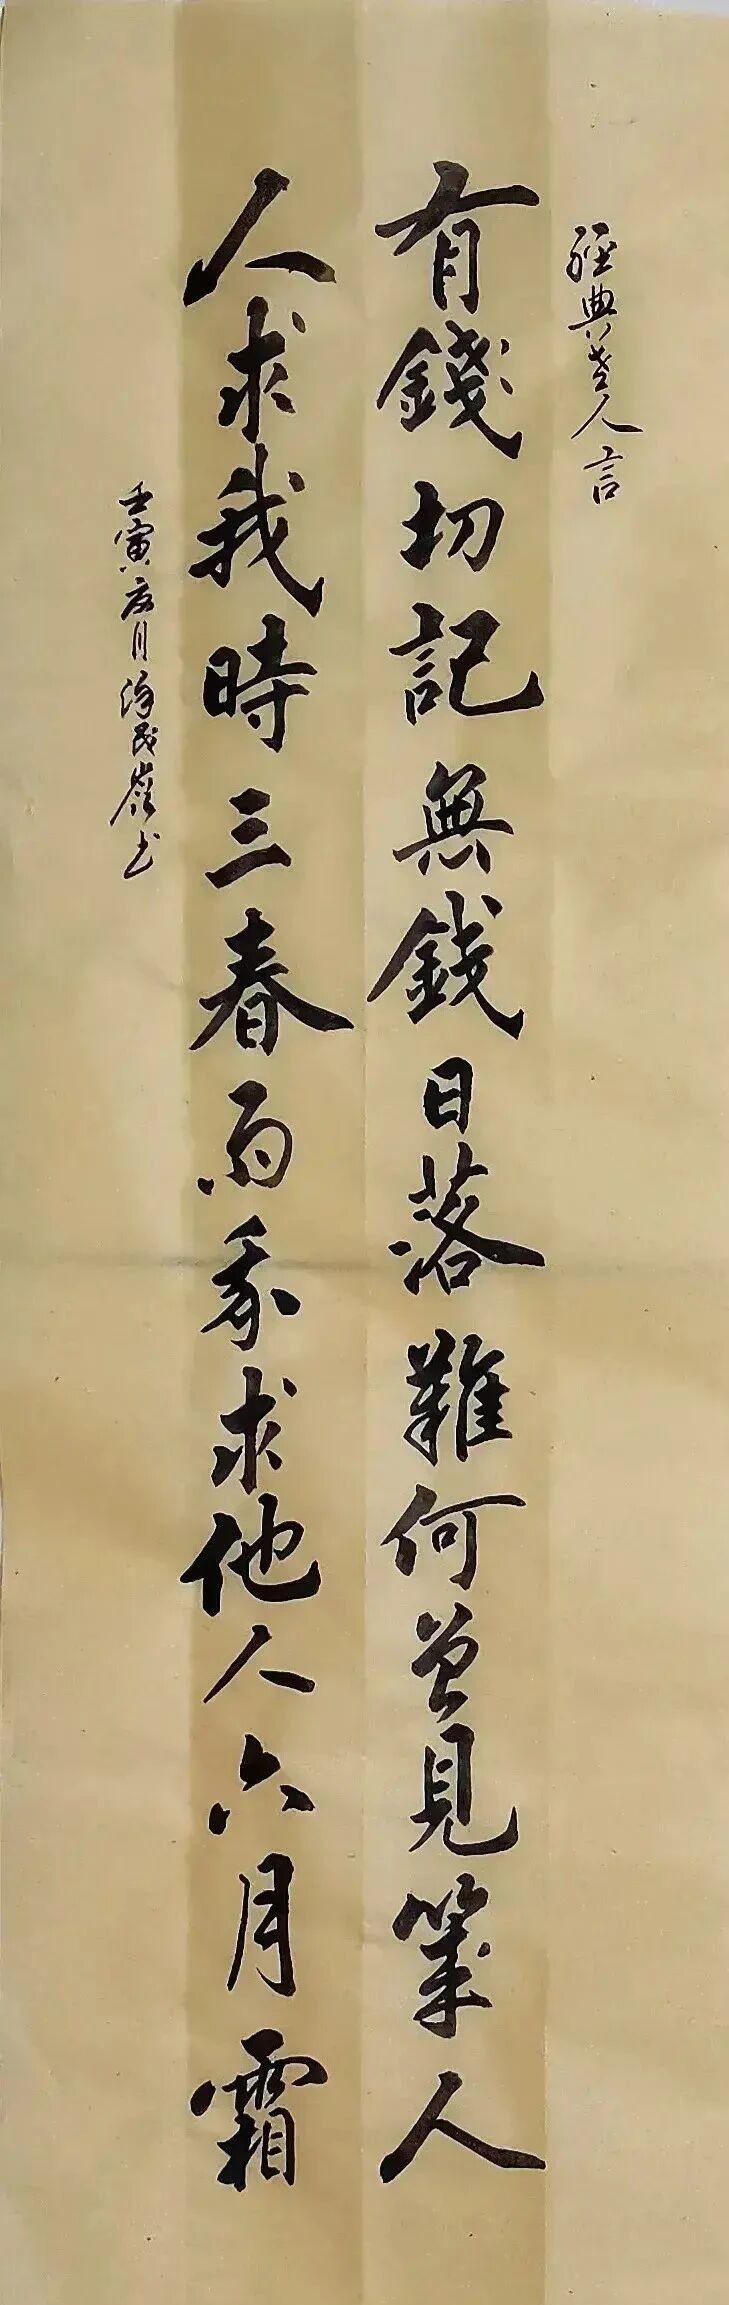 經典老人言
有錢切記無錢日落難何曾見幾人
人求我時三春雨我求他人六月霜
壬寅夏月民嶺书